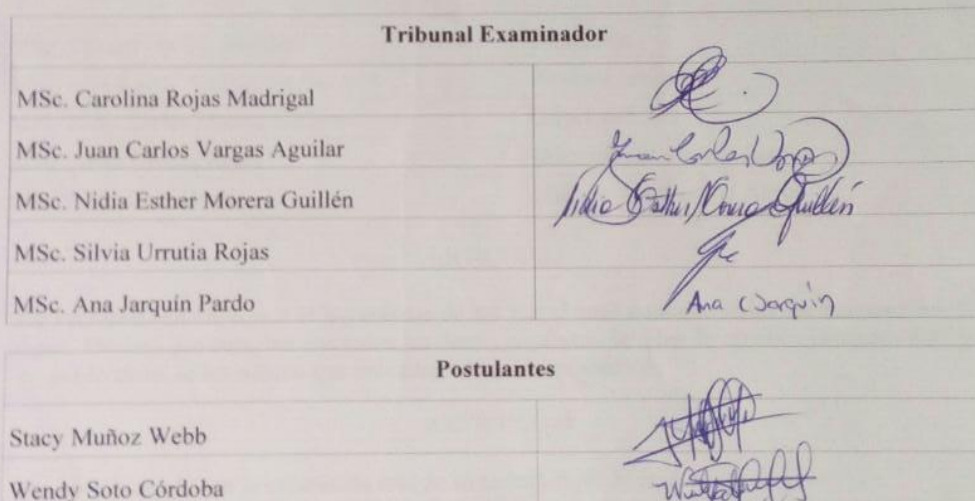 Tribunal Examinador
MSc. Carolina Rojas Madrigal
MSc. Juan Carlos Vargas Aguilar Juan Carlos Vargas
MSc. Nidia Esther Morera Guillén Nidia Esther Morera Guillén
MSc. Silvia Urrutia Rojas
MSc. Ana Jarquín Pardo Ana Jarquín
Postulantes
Stacy Muñoz Webb
Wendy Soto Córdoba